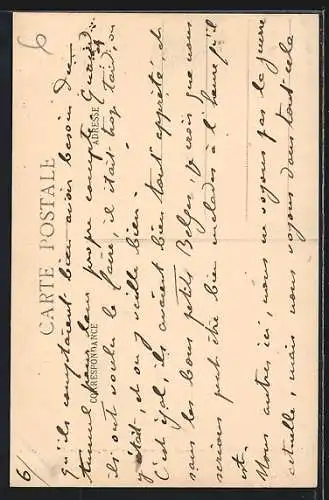 6
6/
CARTE POSTALE
CORRESPONDANCE
ADRESSE
qu'ils comptaient bien avoir besoin du
tunnel pour leur propre compte. Quand
ils ont voulu le faire, il était trop tard, on
y était, et on y veille bien.
C'est égal, ils avaient bien tout apprêté, et
sans les bons petits Belges, je crois que nous
serions peut être bien malades à l'heure qu'il
est.
Nous autres ici, nous ne voyons pas la guerre
actuelle, mais nous voyons dans tout cela